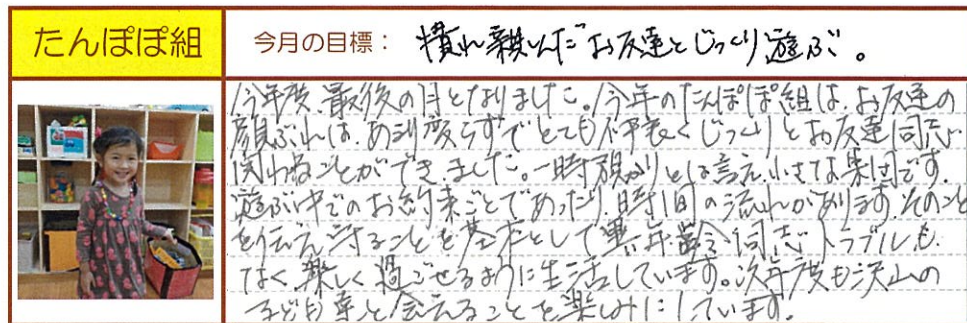 たんぽぽ組
今月の目標： 慣れ親しんだお友達とじっくり遊ぶ。
今年度、最後の月となりました。今年のたんぽぽ組は、お友達の
顔ぶれは、あまり変らずでとても仲良くじっくりとお友達同志
関わることができました。一時預かりとは言え、小さな集団です。
遊ぶ中でのお約束ごとであったり、時間の流れがあります。そのこと
を伝え守ることを基本として異年齢同志トラブルも
なく、楽しく過ごせるように生活しています。次年度も沢山の
子ども達と会えることを楽しみにしています。